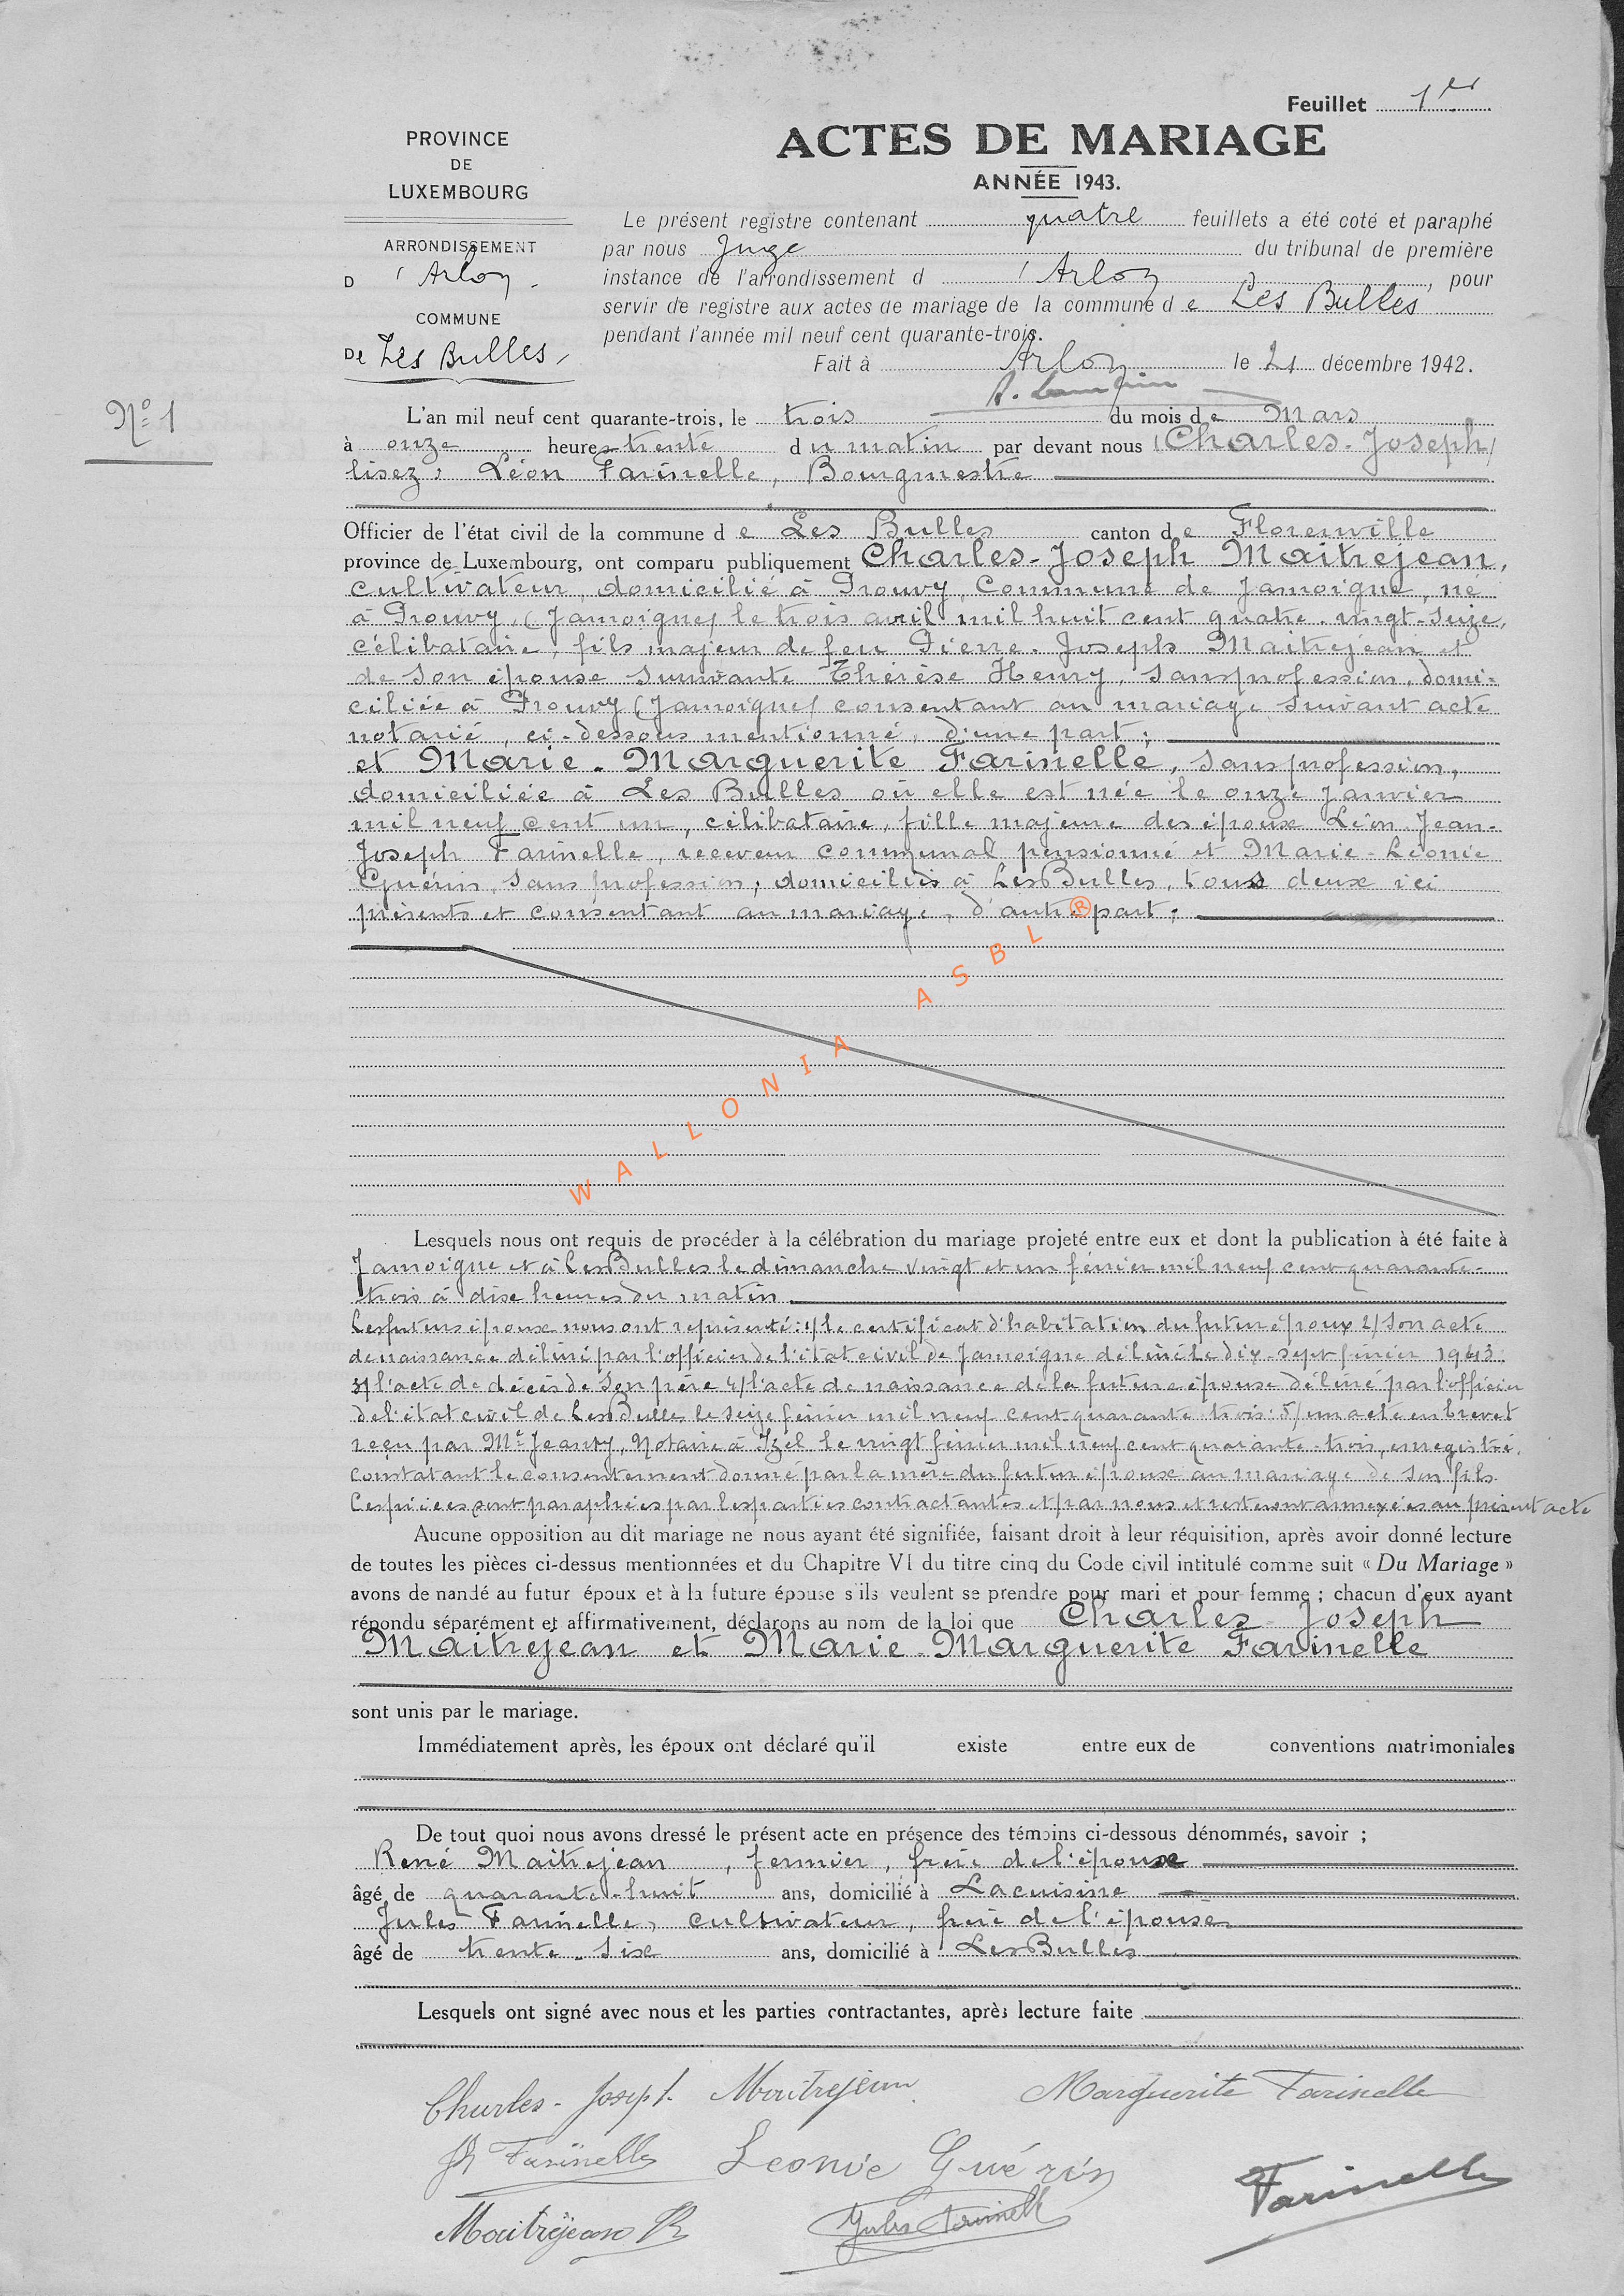 Feuillet 1er
PROVINCE
DE
LUXEMBOURG
ARRONDISSEMENT
D'Arlon
COMMUNE
De Les Bulles
ACTES DE MARIAGE
ANNÉE 1943.
Le présent registre contenant quatre feuillets a été coté et paraphé
par nous Juge du tribunal de première
instance de l'arrondissement d'Arlon, pour
servir de registre aux actes de mariage de la commune de Les Bulles
pendant l'année mil neuf cent quarante-trois.
Fait à Arlon le 21 décembre 1942.
No 1
L'an mil neuf cent quarante-trois, le trois du mois de Mars
à onze heures trente du matin par devant nous (Charles-Joseph)
lisez : Léon Farinelle, Bourgmestre
Officier de l'état civil de la commune de Les Bulles canton de Florenville
province de Luxembourg, ont comparu publiquement Charles-Joseph Maitrejean,
cultivateur, domicilié à Prouvy, Commune de Jamoigne, né
à Prouvy, (Jamoigne) le trois avril mil huit cent quatre-vingt-seize,
célibataire, fils majeur de feu Pierre-Joseph Maitrejean et
de son épouse survivante Thérèse Henry, sans profession, domi-
ciliée à Prouvy (Jamoigne) consentant au mariage suivant acte
notarié, ci-dessous mentionné, d'une part ;
et Marie-Marguerite Farinelle, sans profession,
domiciliée à Les Bulles où elle est née le onze janvier
mil neuf cent un, célibataire, fille majeure des époux Léon-Jean-
Joseph Farinelle, receveur communal pensionné et Marie-Léonie
Guérin, sans profession, domiciliés à Les Bulles, tous deux ici
présents et consentant au mariage, d'autre part ;
WALLONIA ASBL ®
Lesquels nous ont requis de procéder à la célébration du mariage projeté entre eux et dont la publication à été faite à
Jamoigne et à Les Bulles le dimanche vingt et un février mil neuf cent quarante-
trois à dix heures du matin.
Les futurs époux nous ont représenté : 1/ le certificat d'habitation du futur époux 2/ son acte
de naissance délivré par l'officier de l'état civil de Jamoigne délivré le dix-sept février 1943.
3/ l'acte de décès de son père 4/ l'acte de naissance de la future épouse délivré par l'officier
de l'état civil de Les Bulles le seize février mil neuf cent quarante-trois. 5/ un acte en brevet
reçu par Me Jeanty, Notaire à Izel le vingt février mil neuf cent quarante-trois, enregistré,
constatant le consentement donné par la mère du futur époux au mariage de son fils.
Ces pièces sont paraphées par les parties contractantes et par nous et resteront annexées au présent acte
Aucune opposition au dit mariage ne nous ayant été signifiée, faisant droit à leur réquisition, après avoir donné lecture
de toutes les pièces ci-dessus mentionnées et du Chapitre VI du titre cinq du Code civil intitulé comme suit « Du Mariage »
avons demandé au futur époux et à la future épouse s'ils veulent se prendre pour mari et pour femme ; chacun d'eux ayant
répondu séparément et affirmativement, déclarons au nom de la loi que Charles-Joseph
Maitrejean et Marie-Marguerite Farinelle
sont unis par le mariage.
Immédiatement après, les époux ont déclaré qu'il existe entre eux de conventions matrimoniales
De tout quoi nous avons dressé le présent acte en présence des témoins ci-dessous dénommés, savoir ;
René Maitrejean, fermier, frère de l'époux
âgé de quarante-huit ans, domicilié à Lacuisine
Jules Farinelle, cultivateur, frère de l'épouse
âgé de trente-six ans, domicilié à Les Bulles
Lesquels ont signé avec nous et les parties contractantes, après lecture faite
Charles-Joseph Maitrejean Marguerite Farinelle
Farinelle Leonie Guérin Farinelle
Maitrejean R Jules Farinelle